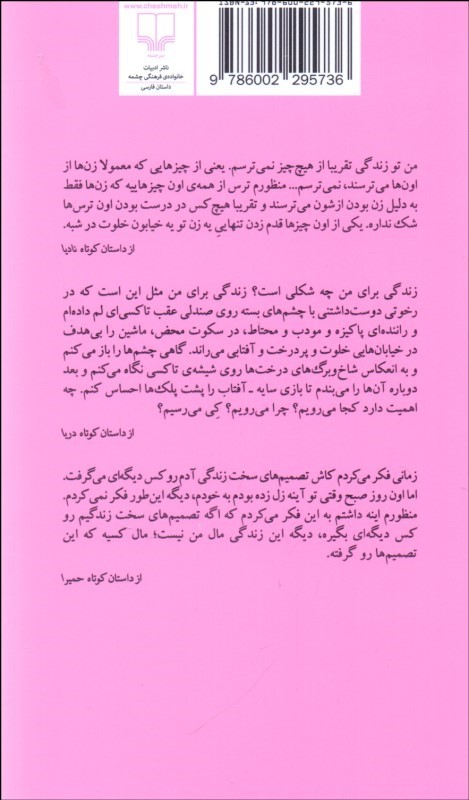 www.cheshmeh.ir
ناشر ادبیات
خانواده‌ی فرهنگی چشمه
داستان فارسی
9 786002 295736
من تو زندگی تقریبا از هیچ‌چیز نمی‌ترسم. یعنی از چیزهایی که معمولا زن‌ها از
اون‌ها می‌ترسند، نمی‌ترسم... منظورم ترس از همه‌ی اون چیزهاییه که زن‌ها فقط
به دلیل زن بودن ازشون می‌ترسند و تقریبا هیچ‌کس در درست بودن اون ترس‌ها
شک نداره. یکی از اون چیزها قدم زدن تنهاییِ یه زن تو یه خیابون خلوت در شبه.
از داستان کوتاه نادیا
زندگی برای من چه شکلی است؟ زندگی برای من مثل این است که در
رخوتی دوست‌داشتنی با چشم‌های بسته روی صندلی عقب تاکسی‌ای لم داده‌ام
و راننده‌ای پاکیزه و مودب و محتاط، در سکوت محض، ماشین را بی‌هدف
در خیابان‌هایی خلوت و پردرخت و آفتابی می‌راند. گاهی چشم‌ها را باز می‌کنم
و به انعکاس شاخ‌وبرگ‌های درخت‌ها روی شیشه‌ی تاکسی نگاه می‌کنم و بعد
دوباره آن‌ها را می‌بندم تا بازی سایه ـ آفتاب را پشت پلک‌ها احساس کنم. چه
اهمیت دارد کجا می‌رویم؟ چرا می‌رویم؟ کِی می‌رسیم؟
از داستان کوتاه دریا
زمانی فکر می‌کردم کاش تصمیم‌های سخت زندگی آدم رو کس دیگه‌ای می‌گرفت.
اما اون روز صبح وقتی تو آینه زل زده بودم به خودم، دیگه این‌طور فکر نمی‌کردم.
منظورم اینه داشتم به این فکر می‌کردم که اگه تصمیم‌های سخت زندگیم رو
کس دیگه‌ای بگیره، دیگه این زندگی مال من نیست؛ مال کسیه که این
تصمیم‌ها رو گرفته.
از داستان کوتاه حمیرا